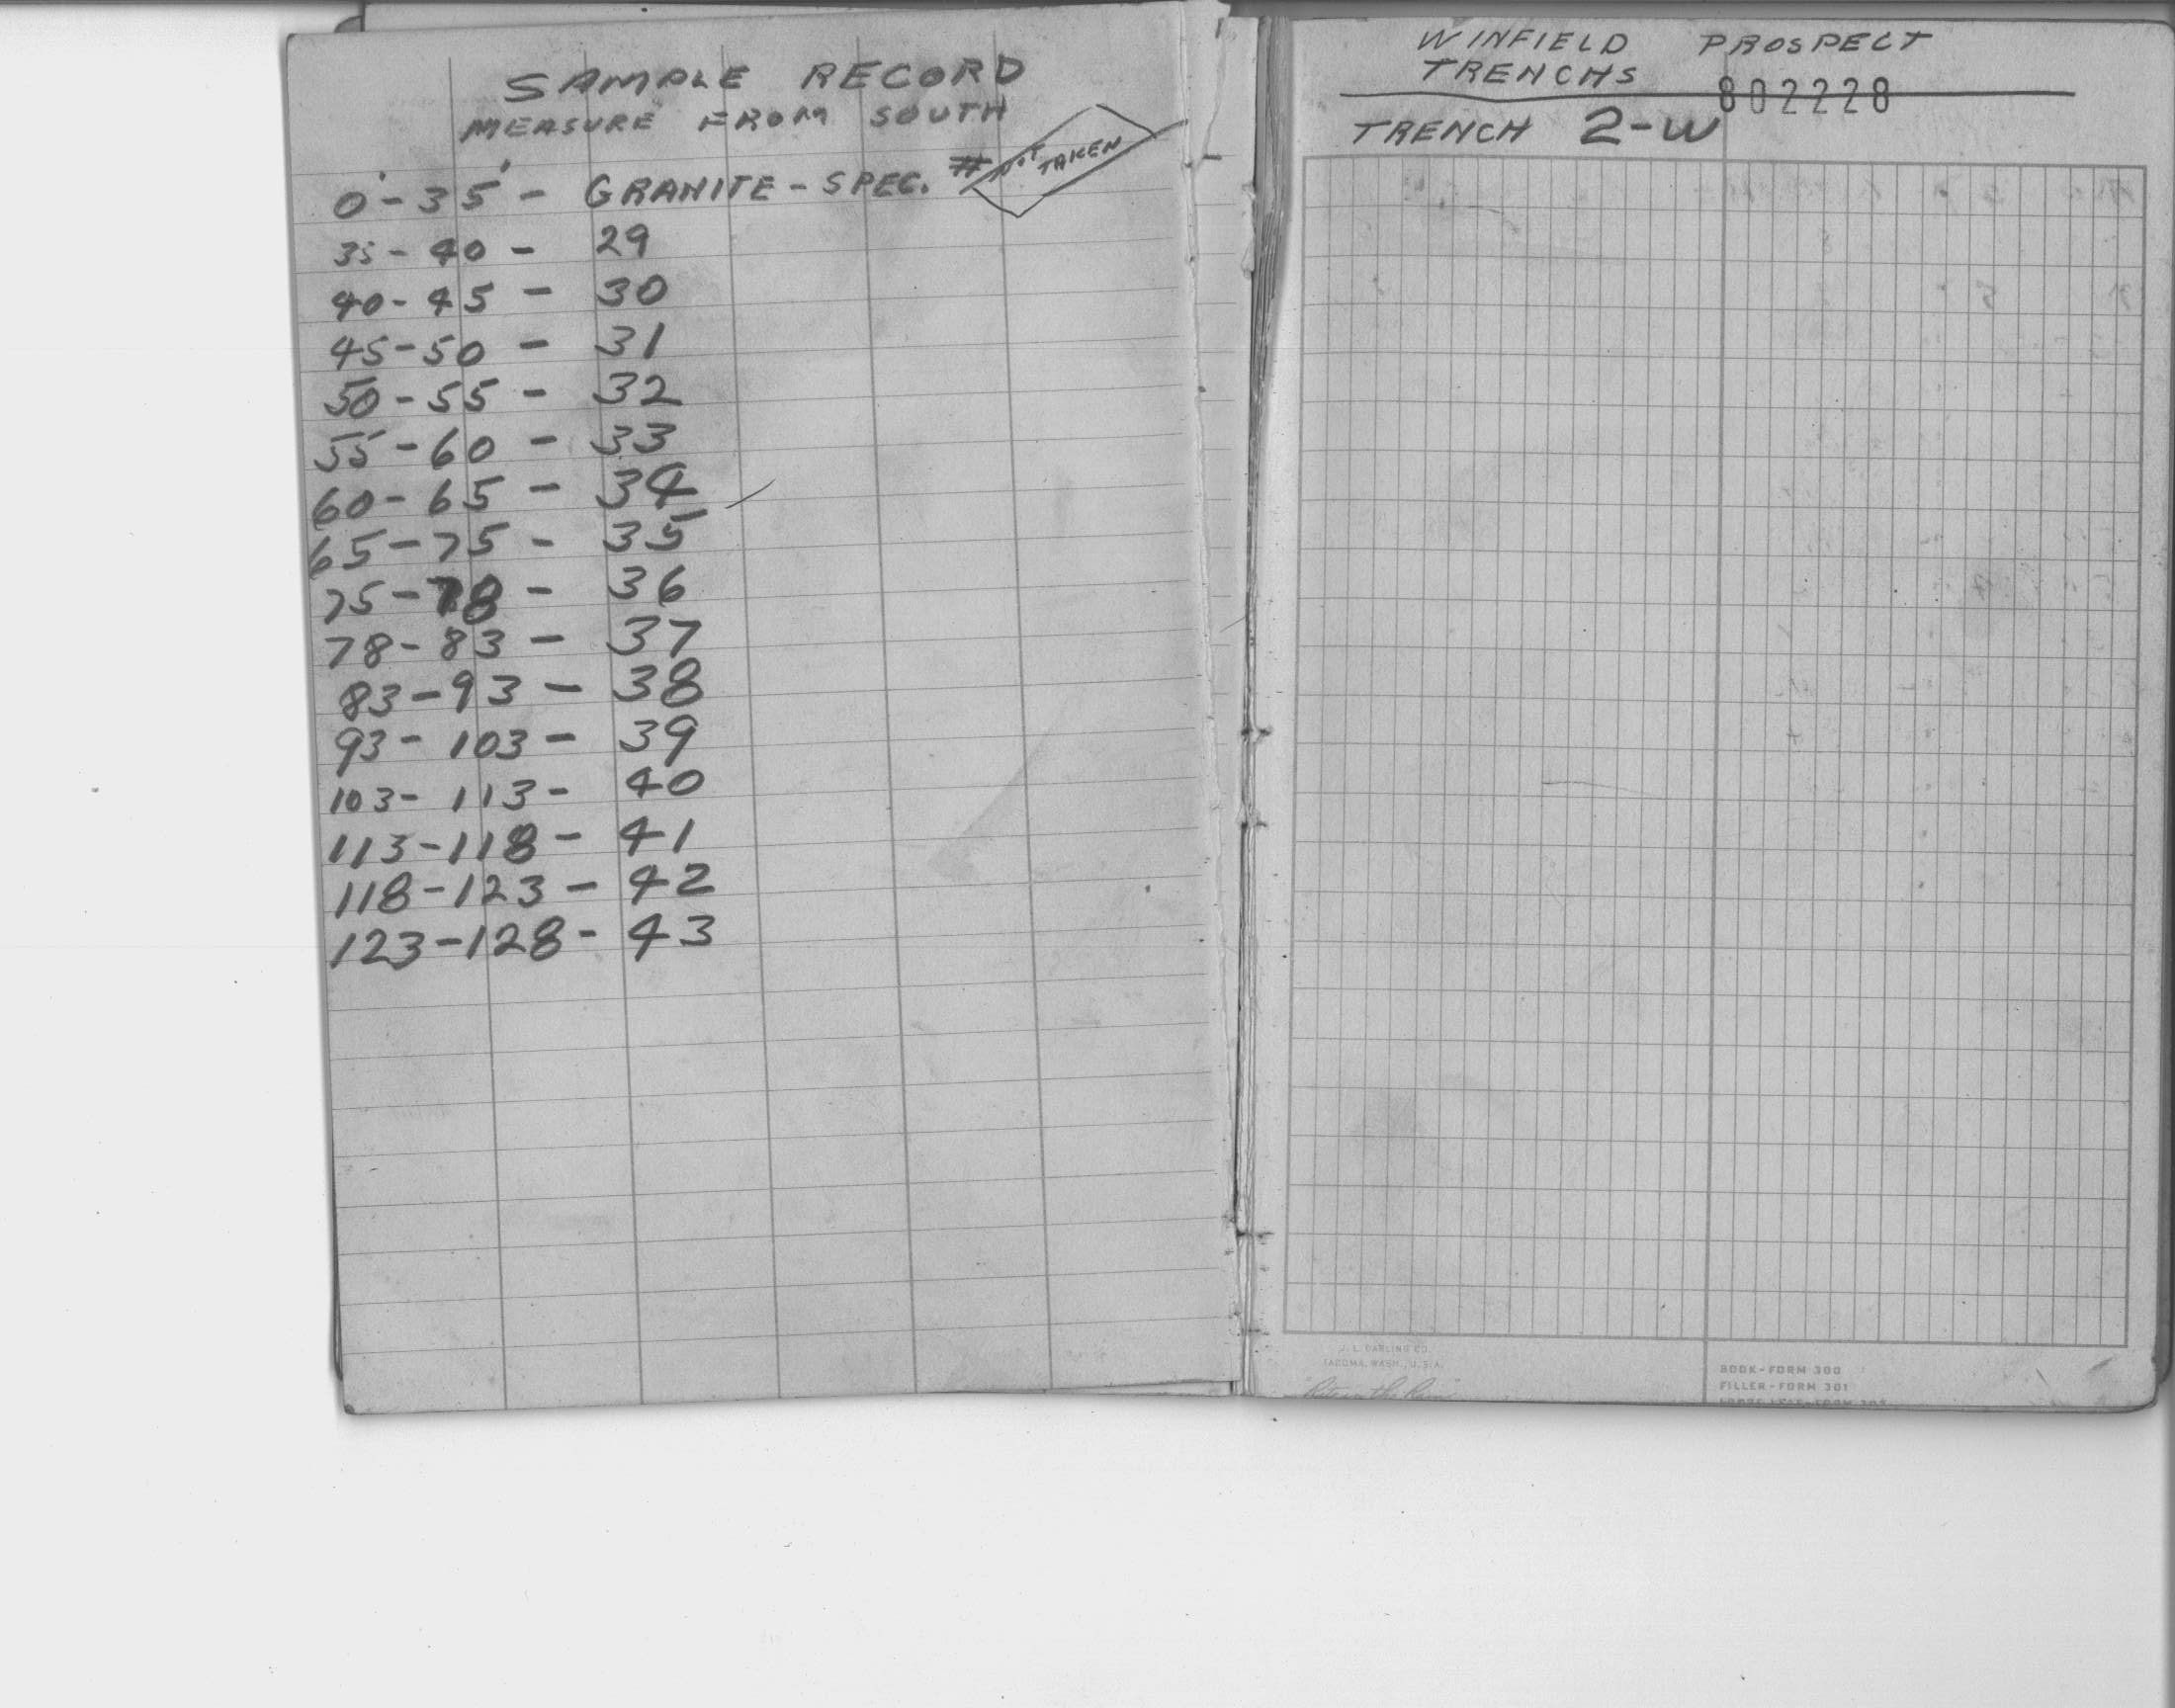 SAMPLE RECORD
MEASURE FROM SOUTH
0'-35' - GRANITE - SPEC. # NOT TAKEN
35-40 - 29
40-45 - 30
45-50 - 31
50-55 - 32
55-60 - 33
60-65 - 34
65-75 - 35
75-78 - 36
78-83 - 37
83-93 - 38
93-103 - 39
103-113- 40
113-118 - 41
118-123 - 42
123-128 - 43
WINFIELD PROSPECT
TRENCHS
802228
TRENCH 2-W
J. L. DARLING CO.
TACOMA, WASH., U.S.A.
BOOK-FORM 300
FILLER-FORM 301